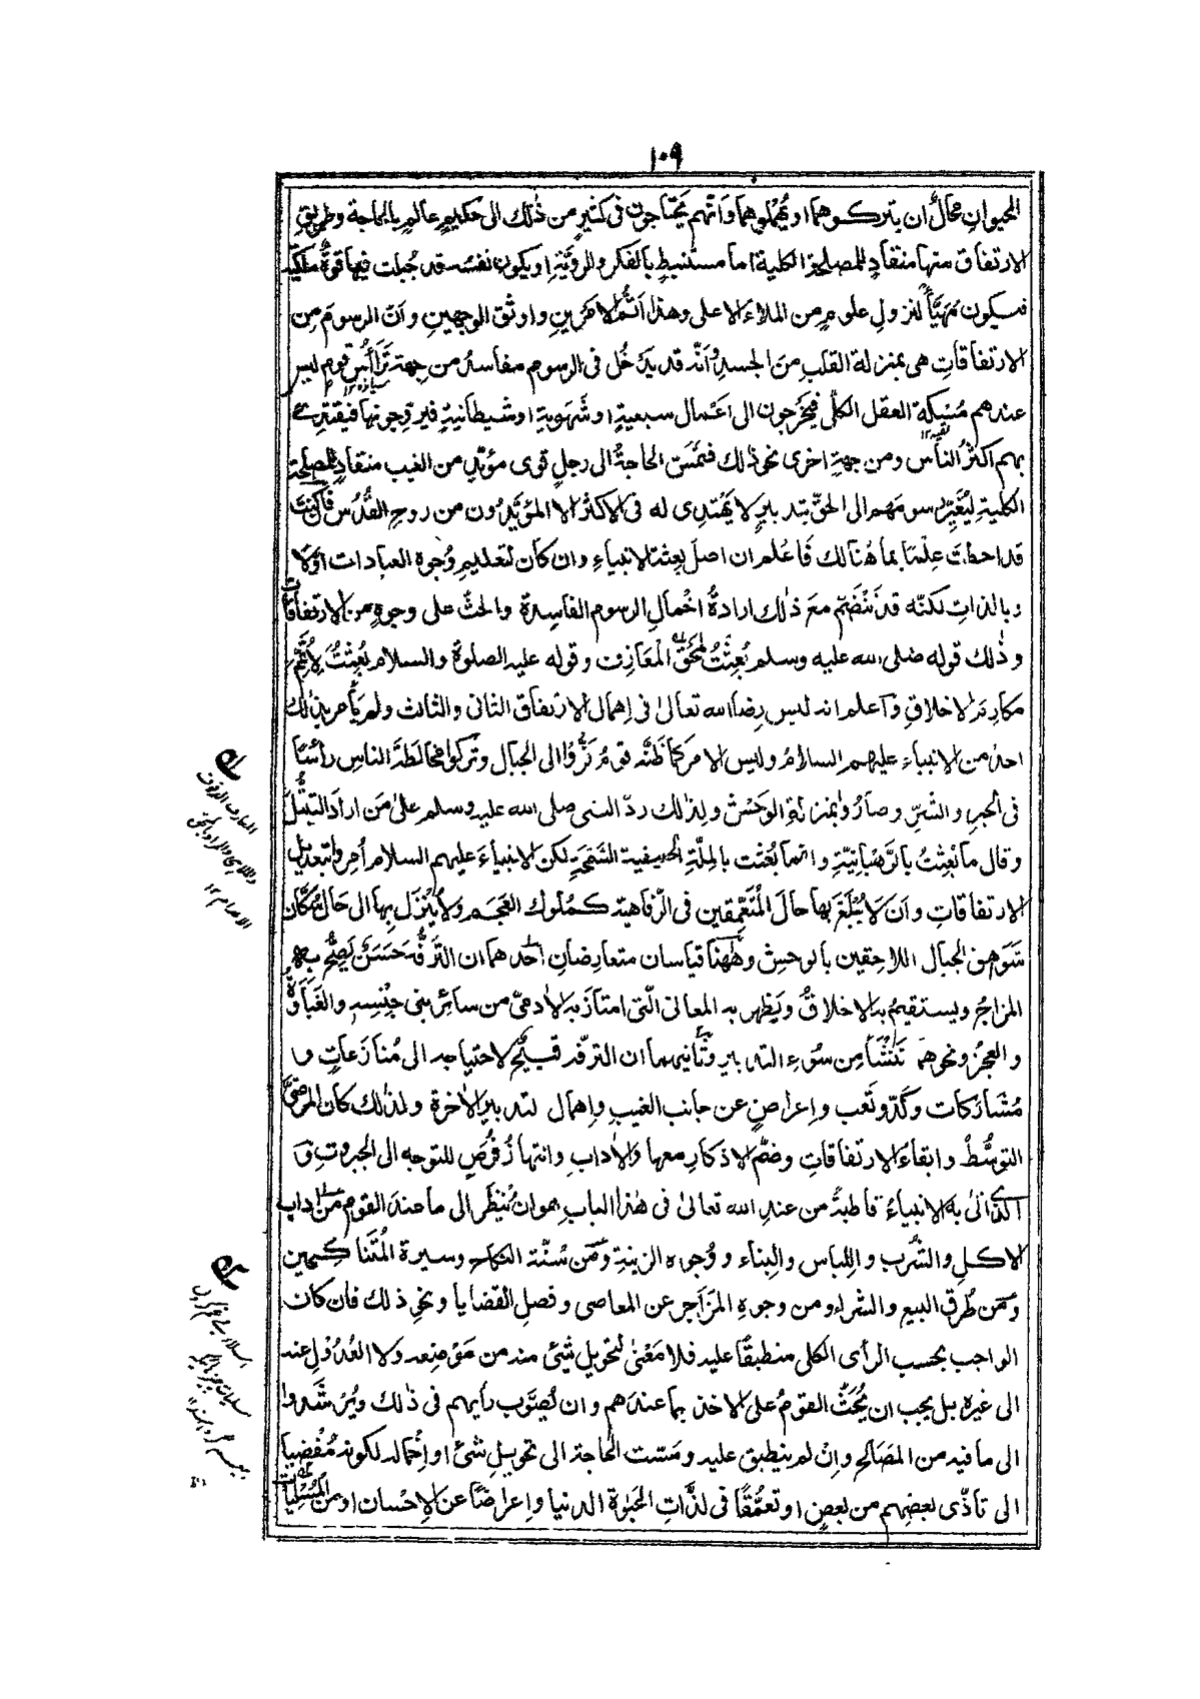 ١٠٩
الحيوانِ محالٌ ان يتركوهما او يُهْمِلوهما وانّهم يَحْتاجون فى كثيرٍ من ذٰلك الى حكيمٍ عالمٍ بالحاجة وطريقِ
الارتفاق منها منقادٍ للمصلحة الكلية اما مستنبطٍ بالفكر والرويّةِ او يكون نفسه قد جُبلت فيها قوةٌ ملكيّة
فيكون مُهيّأً لنزولِ علومٍ من الملاءِ الاعلى وهذا اتمُّ الامرينِ واوثقُ الوجهينِ وانّ الرسومَ مِن
الارتفاقاتِ هى بمنزلة القلبِ مِنَ الجسدِ وانّه قد يدخُل فى الرسوم مفاسدُ من جهة تَرَأُّسِ قومٍ ليس
عندهم مُسْكة العقل الكلّى فيَخرُجون الى اعمال سبعيةٍ او شَهَويةٍ او شيطانيةٍ فيروّجونها فيَقتدِى
بهم اكثرُ الناس ومن جهةٍ اخرى نحوِ ذلك فتمَسّ الحاجةُ الى رجلٍ قوى مؤيّدٍ من الغيب منقادٍ للمصلحة
الكلية لِيُغيّر رسومَهم الى الحقّ بتدبيرٍ لا يَهْتدى له فى الاكثر الا المؤيّدون من روحِ القُدُس فإن كنت
قد احطتَ علمًا بما هُنالك فَاعْلم ان اصلَ بعثة الانبياءِ وان كان لتعليمِ وُجوه العبادات اوّلا
وبالذاتِ لكنّه قد تنضَمّ معَ ذٰلك ارادةُ اخْمالِ الرسوم الفاسدة والحثُّ على وجوهٍ من الارتفاقات
وذٰلك قوله صلى الله عليه وسلم بُعِثْتُ لِمَحْقِ المَعَازِف وقوله عليه الصلوة والسلام بُعِثْتُ لِاُتَمِّمَ
مكارمَ الاخلاقِ وَاعلم انه ليس رِضاَ الله تعالىٰ فى اِهمال الارتفاق الثانى والثالث ولم يأمر بذلك
احدٌ من الانبياءِ عليهم السلامُ وليس الامر كما ظنّه قومٌ فرُّوا الى الجبال وتركوا مخالطةَ الناس رأسًا
فى الخيرِ والشرِّ وصارُوا بمنزلةِ الوَحْش ولِذلك ردّ النبى صلى الله عليه وسلم علىٰ مَن ارادَ التبتُّل
وقال ما بُعِثْتُ بالرَّهْبَانِيّةِ وانّما بُعِثْت بالمِلّةِ الحنيفية السَمْحَةِ لكن الانبياءَ عليهم السلام اُمِروا بتعديل
الارتفاقاتِ وان لا يُبْلَغَ بها حالَ المُتعمّقين فى الرّفاهية كمُلوك العَجَم ولا يُنْزَل بها الى حال سُكّان
شَوَاهق الجبال اللاحِقين بالوحشِ وهٰهنا قياسان متعارضانِ احدهما ان التَرَفُّه حَسَنٌ يَصُحُّ به
المزاجُ ويستقيمُ به الاخلاقُ ويَظهر به المعانى الّتى امتازَ به الاٰدمىّ من سائرِ بنى جِنْسِهٖ والغَباوَةُ
والعجزُ ونحوهما تَنْشَأ مِن سُوءِ التدبير وثانيهما ان الترفّه قبيحٌ لاحتياجه الى مُنازَعاتٍ و
مُشَارَكات وكَدٍّ وتَعب واعراضٍ عن جانب الغيبِ واِهمال لتدبيرِ الاٰخرةِ ولذلك كان المرضىُّ
التوسُّطَ وابقاءَ الارتفاقاتِ وضمَّ الاذكارِ معها والاٰدابِ وانتهازُ فُرَصٍ للتوجه الى الجبروت ق
الذى اتىٰ به الانبياءُ قاطبةً من عندِ الله تعالىٰ فى هٰذا البابِ هو ان يُنظَر الى ما عندَ القوم من اٰداب
الاكلِ والشُرب واللِباسِ والبِناء ووُجوهِ الزينةِ ومن سُنّة النكاح وسيرة المُتَناكِحين
ومن طُرقِ البيعِ والشراءِ ومن وجوهِ المَزَاجرِ عن المعاصى وفصلِ القضايا ونحوِ ذٰلك فان كان
الواجب بحسبِ الرأى الكلى منطبقًا عليه فلا مَعْنىٰ لتحويل شئ منه من مَوْضِعه ولا العُدُوْلِ عنه
الى غيره بل يجب ان يُحَثَّ القومُ على الاخذِ بما عندهم وان يُصوَّب رأيهم فى ذٰلك ويُرْشَدوا
الى ما فيه من المَصَالح وانْ لم ينطبق عليه ومَسّت الحاجة الى تحويلِ شئ او اِخْماله لكونه مُفْضِيا
الى تأذّى بعضِهم من بعضٍ او تعمُّقًا فى لذّاتِ الحيوٰة الدنيا واعراضًا عن الاِحْسان او من المُسْليات